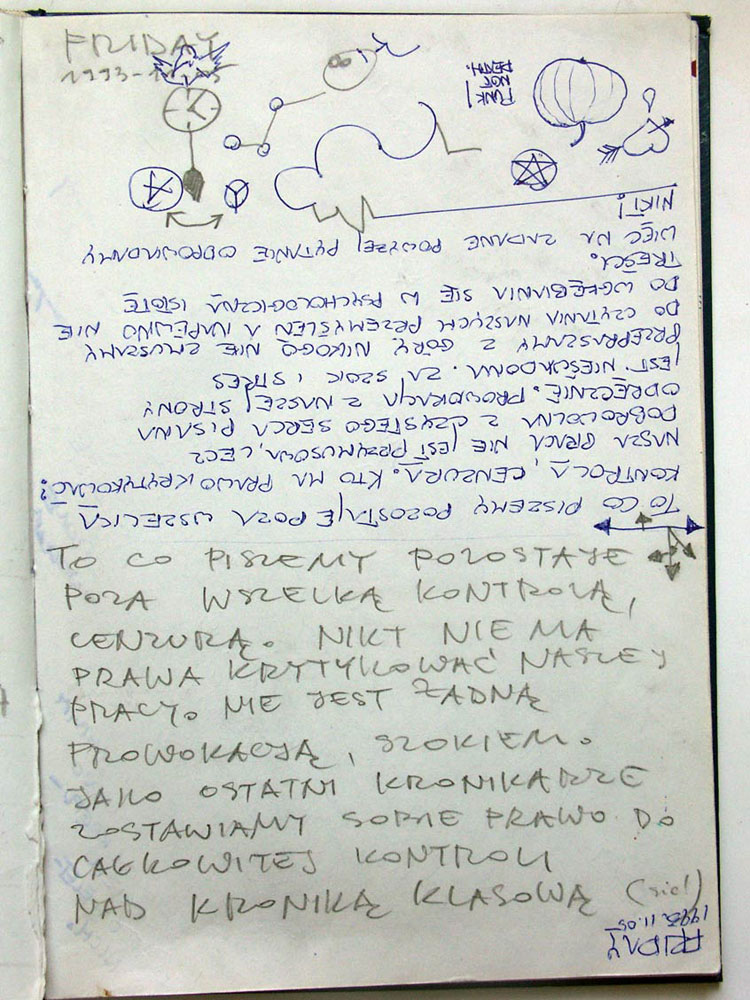 FRIDAY
1993-11-05
PUNK
NOT
DEATH.
TO CO PISZEMY POZOSTAJE POZA WSZELKĄ
KONTROLĄ, CENZURĄ. KTO MA PRAWO KRYTYKOWAĆ?
NASZA PRACA NIE JEST PRZYMUSOWA, LECZ
DOBROWOLNA Z CZYSTEGO SERCA PISANA
ODRĘCZNIE. PROWOKACJA Z NASZEJ STRONY
JEST NIEŚWIADOMA. ZA SZOK I STRES
PRZEPRASZAMY Z GÓRY. NIKOGO NIE ZMUSZAMY
DO CZYTANIA NASZYCH PRZEMYŚLEŃ A NAPEWNO NIE
DO WGŁĘBIANIA SIĘ W PSYCHOLOGICZNĄ ISTOTĘ
TREŚCI.
WIĘC NA ZADANE POWYŻEJ PYTANIE ODPOWIADAMY
NIKT!
TO CO PISZEMY POZOSTAJE
POZA WSZELKĄ KONTROLĄ,
CENZURĄ. NIKT NIE MA
PRAWA KRYTYKOWAĆ NASZEJ
PRACY. NIE JEST ŻADNĄ
PROWOKACJĄ, SZOKIEM.
JAKO OSTATNI KRONIKARZE
ZOSTAWIAMY SOBIE PRAWO DO
CAŁKOWITEJ KONTROLI
NAD KRONIKĄ KLASOWĄ (sic!)
FRIDAY
1993.11.05